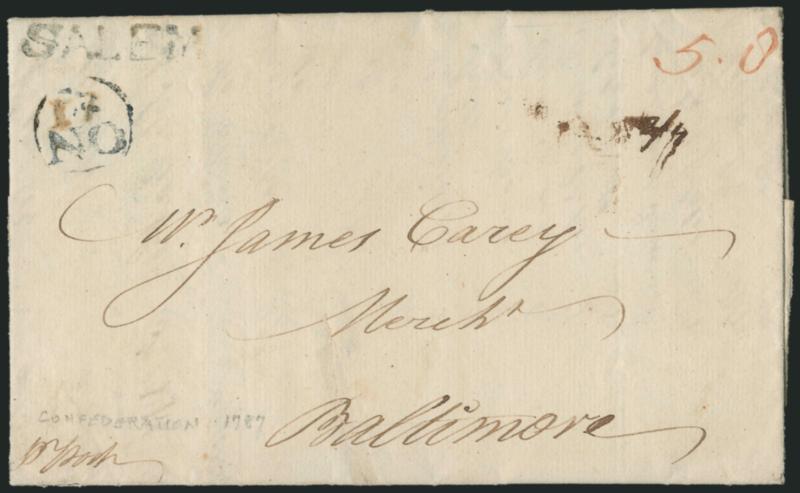 SALEM
5.0
NO
Mr. James Carey
Mercht
Baltimore
CONFEDERATION 1787